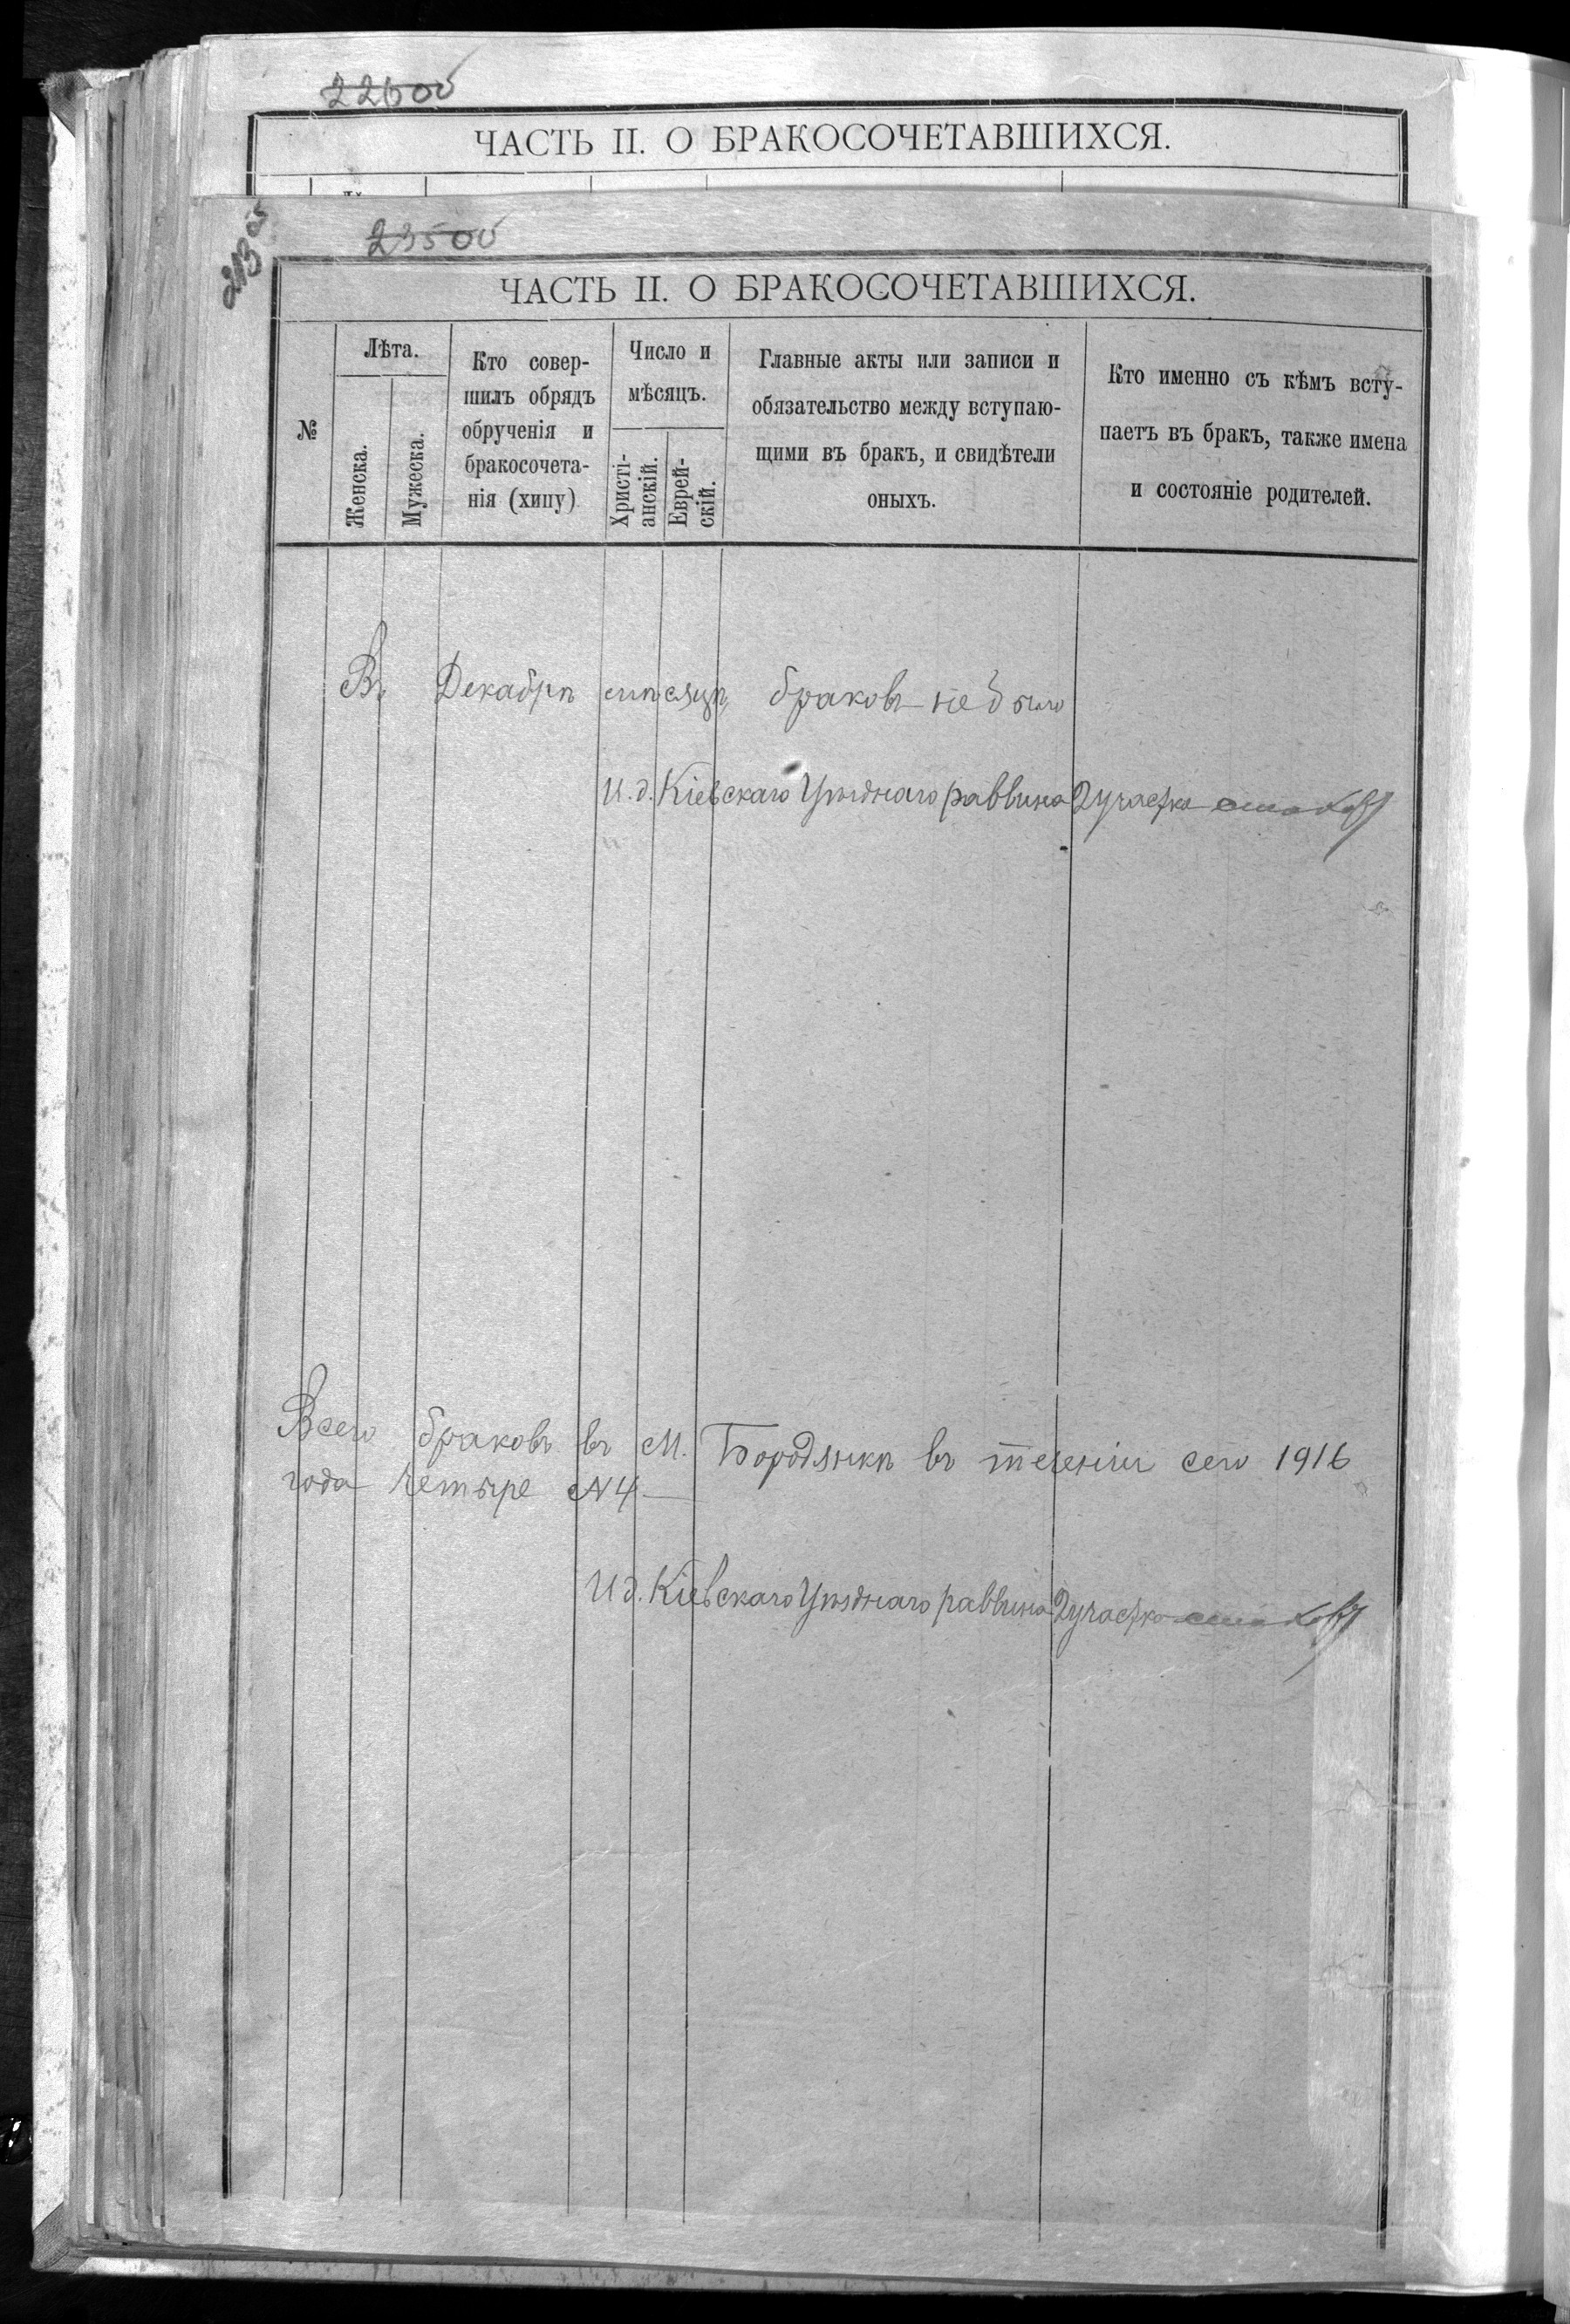 22600
ЧАСТЬ II. О БРАКОСОЧЕТАВШИХСЯ.
23500
ЧАСТЬ II. О БРАКОСОЧЕТАВШИХСЯ.
№
Лѣта.
Женска.
Мужеска.
Кто совер-
шилъ обрядъ
обрученія и
бракосочета-
нія (хипу)
Число и
мѣсяцъ.
Христі-
анскій.
Еврей-
скій.
Главные акты или записи и
обязательство между вступаю-
щими въ бракъ, и свидѣтели
оныхъ.
Кто именно съ кѣмъ всту-
паетъ въ бракъ, также имена
и состояніе родителей.
Въ Декабрѣ мѣсяцѣ браковъ небыло
И.д. Кіевскаго Уѣзднаго раввина 2 участка
Всего браковъ въ М. Бородянкѣ въ теченіи сего 1916
года четыре №4
И.д. Кіевскаго Уѣзднаго раввина 2 участка